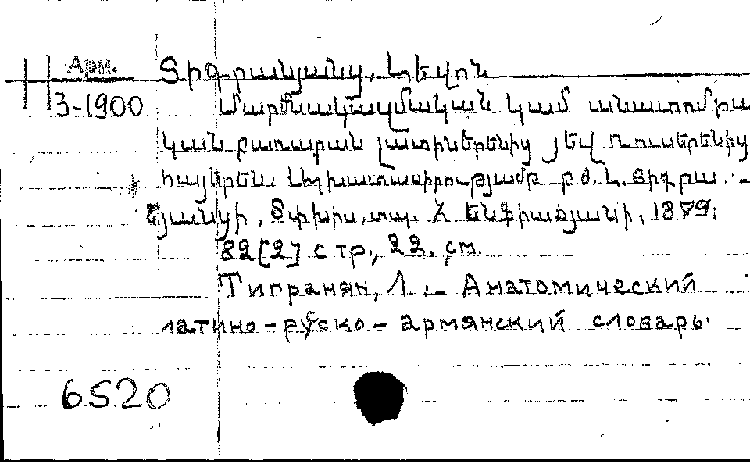 Арм.
Տիգրանյանց, Լևոն
3-1900
Մարմնակազմական կամ անատոմիա
կան բառարան լատիներենից յեվ ռուսերենից
հայերեն. Աշխատասիրությամբ բժ. Լ. Տիգրա. -
նյանցի, Թիֆլիս, տպ. Հ. Էնֆիաճյանի, 1879.
82 [2] стр., 22. см.
Тигранян, Л. - Анатомический
латино-руско-армянский словарь.
6520